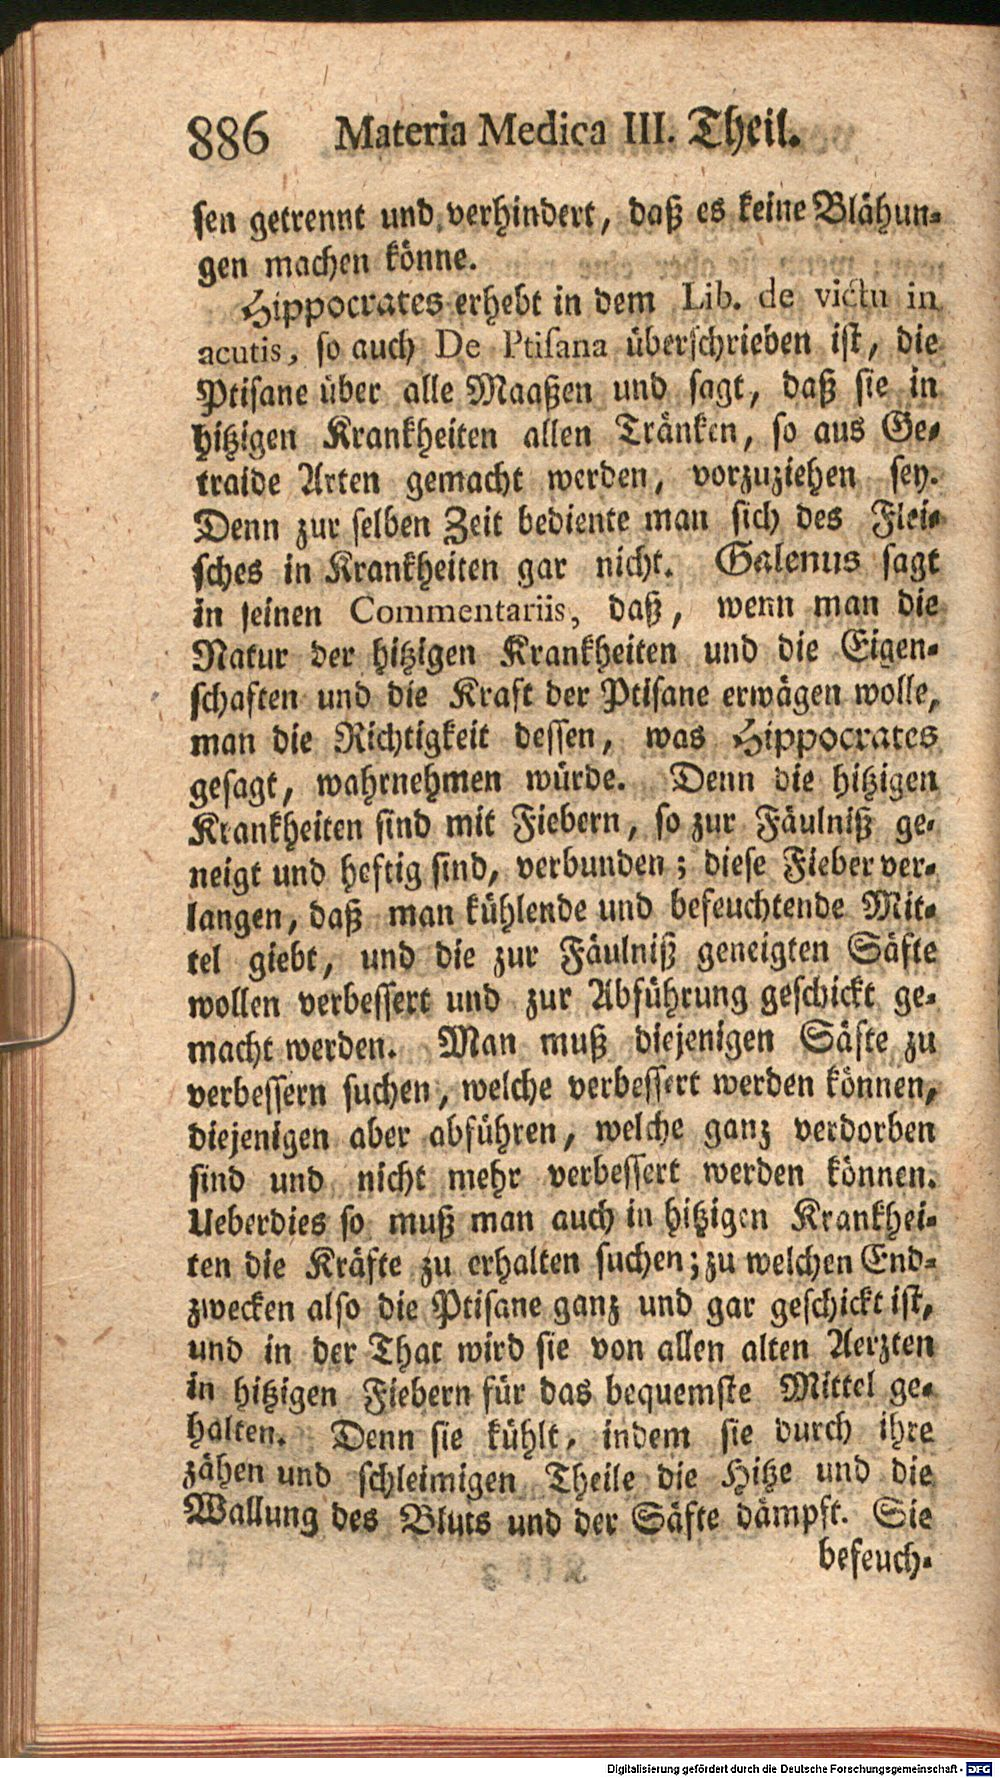 886 Materia Medica III. Theil.
sen getrennt und verhindert, daß es keine Blähun-
gen machen könne.
Hippocrates erhebt in dem Lib. de victu in
acutis, so auch De Ptisana überschrieben ist, die
Ptisane über alle Maaßen und sagt, daß sie in
hitzigen Krankheiten allen Tränken, so aus Ge-
traide Arten gemacht werden, vorzuziehen sey.
Denn zur selben Zeit bediente man sich des Flei-
sches in Krankheiten gar nicht. Galenus sagt
in seinen Commentariis, daß, wenn man die
Natur der hitzigen Krankheiten und die Eigen-
schaften und die Kraft der Ptisane erwägen wolle,
man die Richtigkeit dessen, was Hippocrates
gesagt, wahrnehmen würde. Denn die hitzigen
Krankheiten sind mit Fiebern, so zur Fäulniß ge-
neigt und heftig sind, verbunden; diese Fieber ver-
langen, daß man kühlende und befeuchtende Mit-
tel giebt, und die zur Fäulniß geneigten Säfte
wollen verbessert und zur Abführung geschickt ge-
macht werden. Man muß diejenigen Säfte zu
verbessern suchen, welche verbessert werden können,
diejenigen aber abführen, welche ganz verdorben
sind und nicht mehr verbessert werden können.
Ueberdies so muß man auch in hitzigen Krankhei-
ten die Kräfte zu erhalten suchen; zu welchen End-
zwecken also die Ptisane ganz und gar geschickt ist,
und in der That wird sie von allen alten Aerzten
in hitzigen Fiebern für das bequemste Mittel ge-
halten. Denn sie kühlt, indem sie durch ihre
zähen und schleimigen Theile die Hitze und die
Wallung des Bluts und der Säfte dämpft. Sie
befeuch-
Digitalisierung gefördert durch die Deutsche Forschungsgemeinschaft - DFG